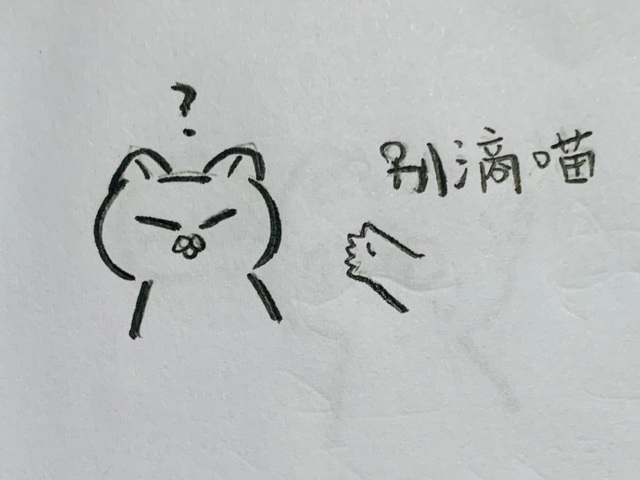 ?
别滴喵